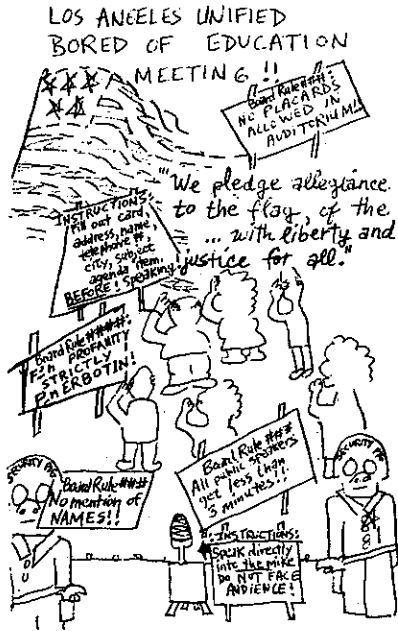 LOS ANGELES UNIFIED
BORED OF EDUCATION
MEETING!!
Board Rule###:
NO PLACARDS
ALLOWED IN
AUDITORIUM!
"We pledge allegiance
to the flag, of the
... with liberty and
justice for all."
INSTRUCTIONS:
Fill out card,
address, name,
telephone #,
city, subject
agenda item.
BEFORE! Speaking!
Board Rule####:
PROFANITY
STRICTLY
SECURITY PIG
Board Rule###
No mention of
NAMES!!
Board Rule###
All public speakers
get less than
3 minutes!!
SECURITY PIG
INSTRUCTIONS:
Speak directly
into the mike
DO NOT FACE
AUDIENCE!